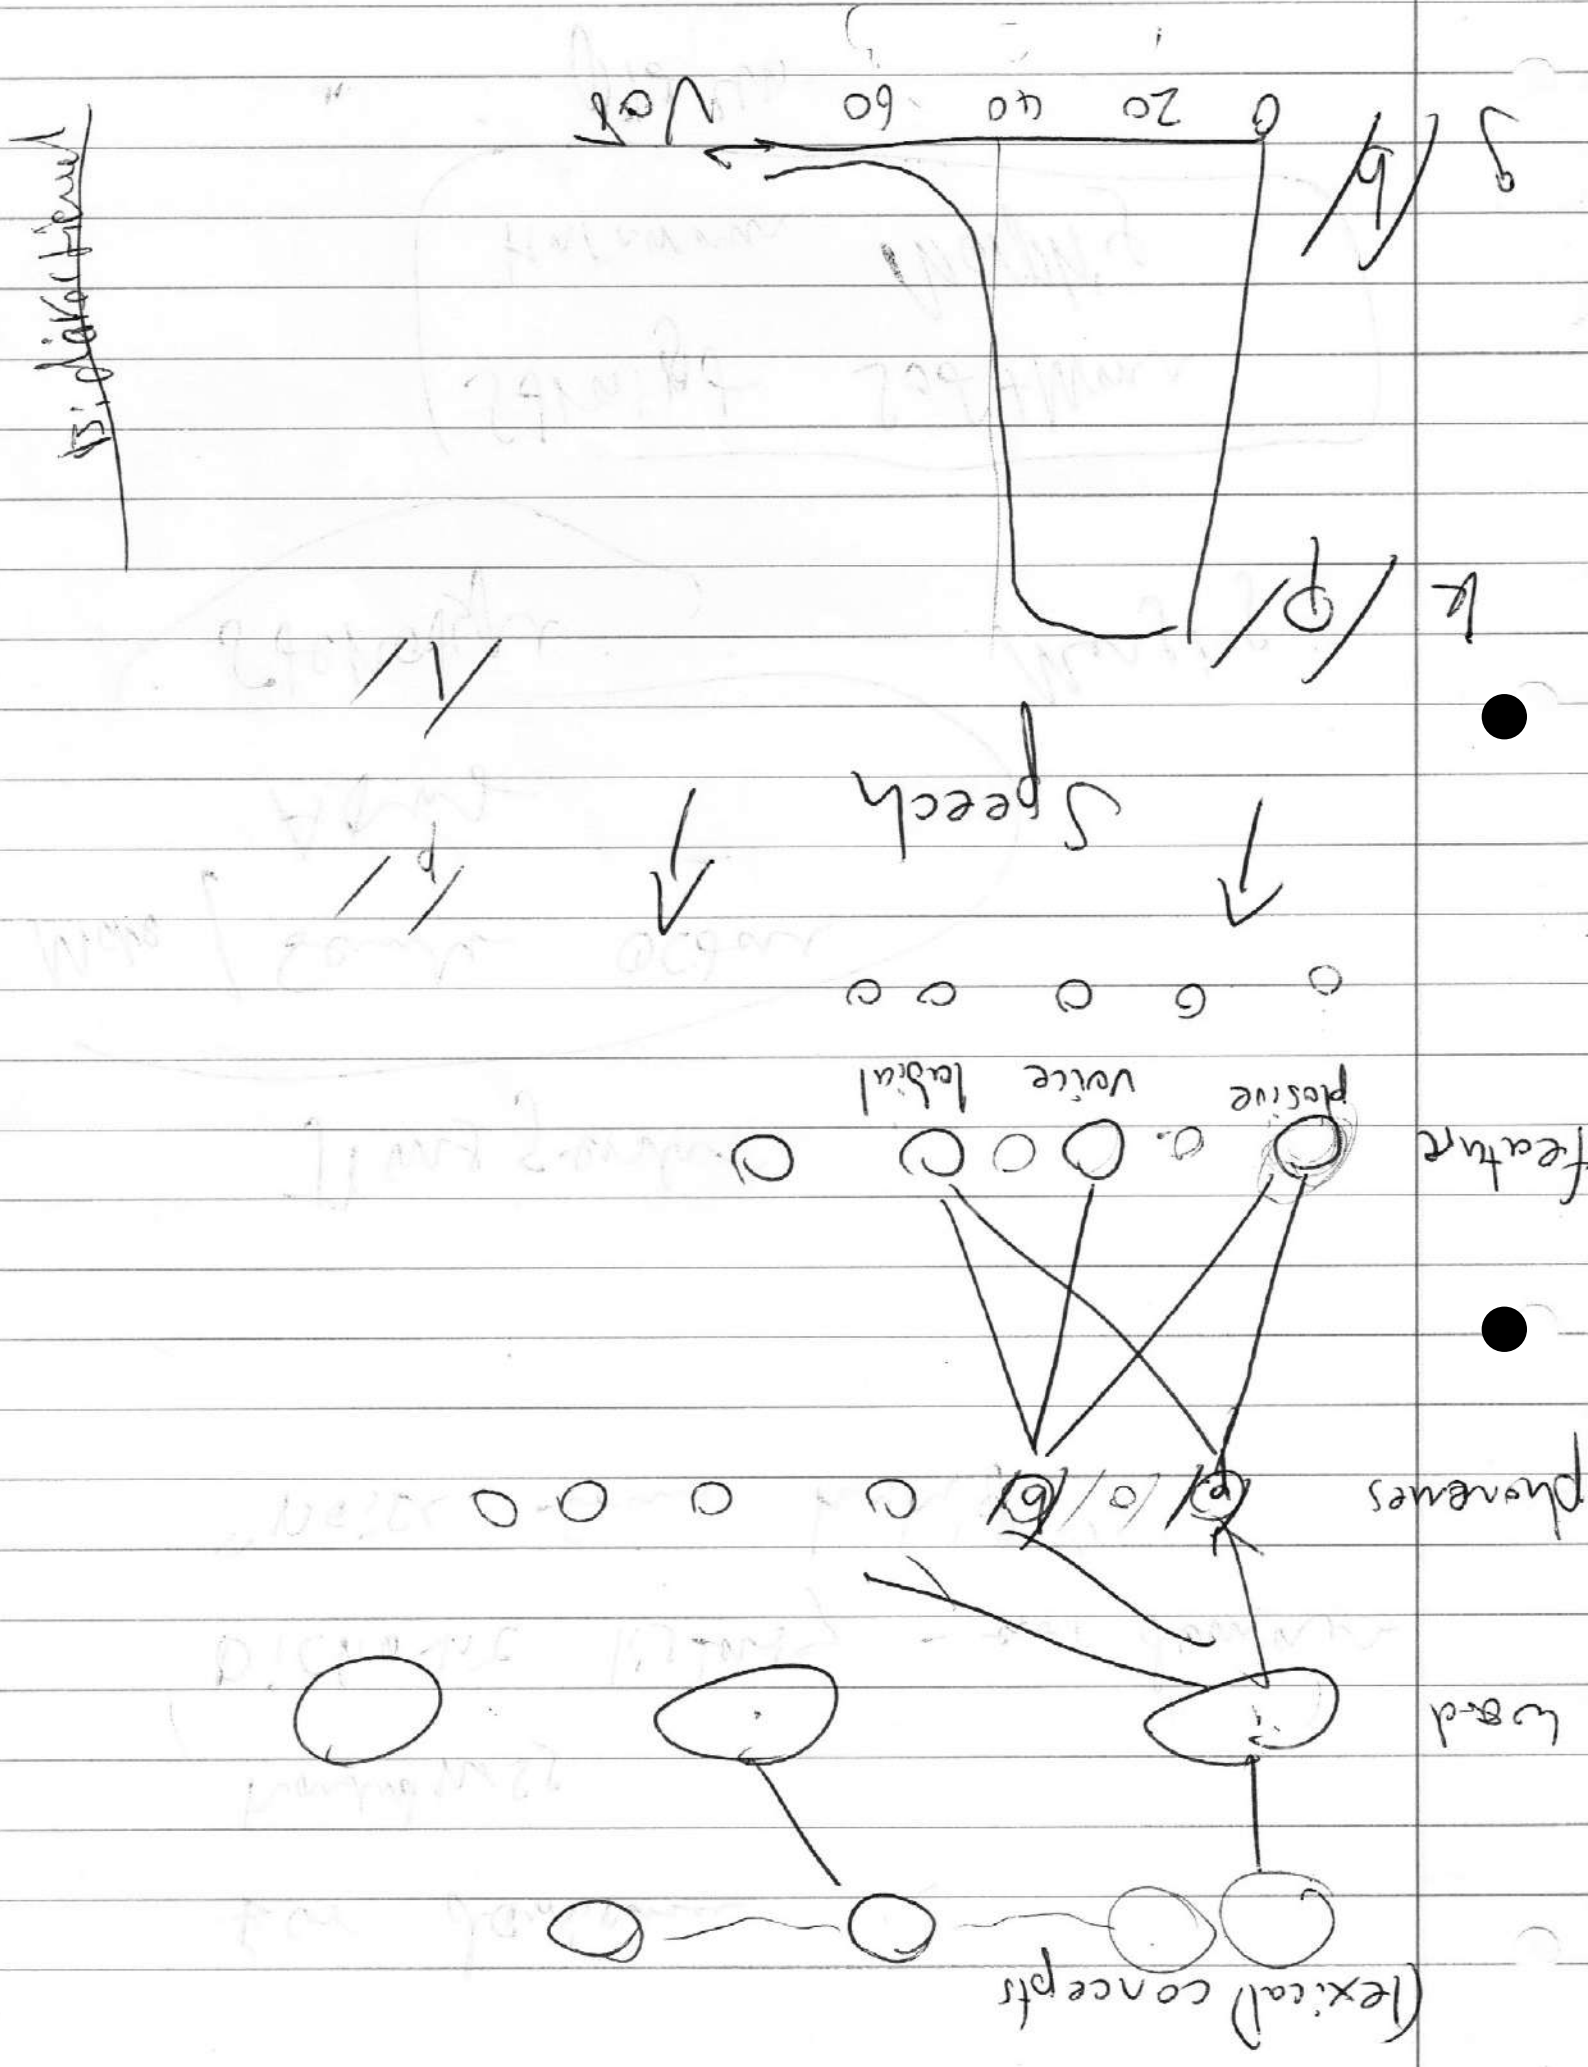 (lexical) concepts
word
phonemes /p/ / / /b/
feature
plosive voice labial
Speech
/p/
k /p/
/v/
g /b/
0 20 40 60 VOT
Bidirectional